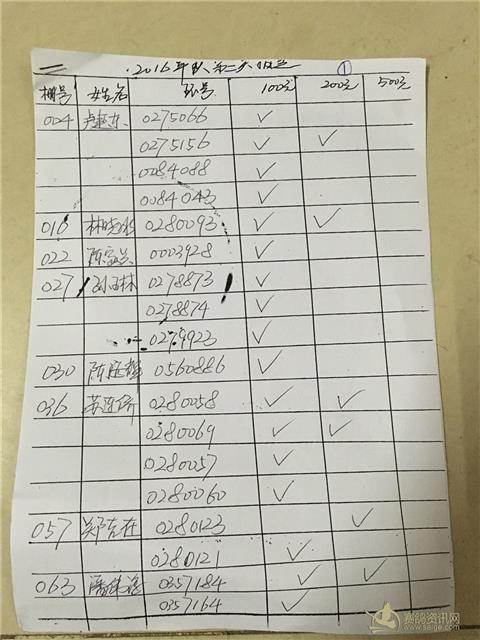 2016年 第二关
①
棚号 姓名 环号 100元 200元 500元
004 东 0275066 ✓
0275156 ✓ ✓
0084088 ✓
0084043 ✓
016 林 0280093 ✓ ✓
022 陈 0003928 ✓
027 孙 林 0278873 ✓
0278874 ✓
0279923 ✓
030 陈 0560886 ✓
036 苏 0280058 ✓ ✓
0280069 ✓ ✓
0280057 ✓
0280060 ✓
057 郑 在 0280123 ✓
0280121 ✓
063 潘 0357184 ✓ ✓
0357164 ✓
赛鸽资讯网
www.saige.com